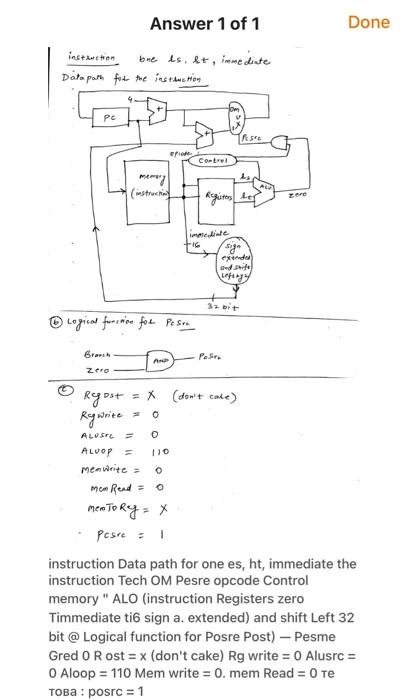 Answer 1 of 1
Done
instruction bne rs, rt, immediate
Datapath for the instruction
4
PC
+
+
0 m
u
1 x
Pcsrc
opcode
control
memory
(instruction)
Registers
rs
rt
ALU
zero
immediate
16
sign
extended
and shift
left by 2
32 bit
(b) Logical function for PcSrc
Branch
Zero
AND
PcSrc
(c) RegDst = X (don't cake)
Regwrite = 0
ALUSrc = 0
ALUOP = 110
memwrite = 0
mem Read = 0
memToReg = X
Pcsrc = 1
instruction Data path for one es, ht, immediate the
instruction Tech OM Pesre opcode Control
memory " ALO (instruction Registers zero
Timmediate ti6 sign a. extended) and shift Left 32
bit @ Logical function for Posre Post) — Pesme
Gred 0 R ost = x (don't cake) Rg write = 0 Alusrc =
0 Aloop = 110 Mem write = 0. mem Read = 0 те
това : posrc = 1